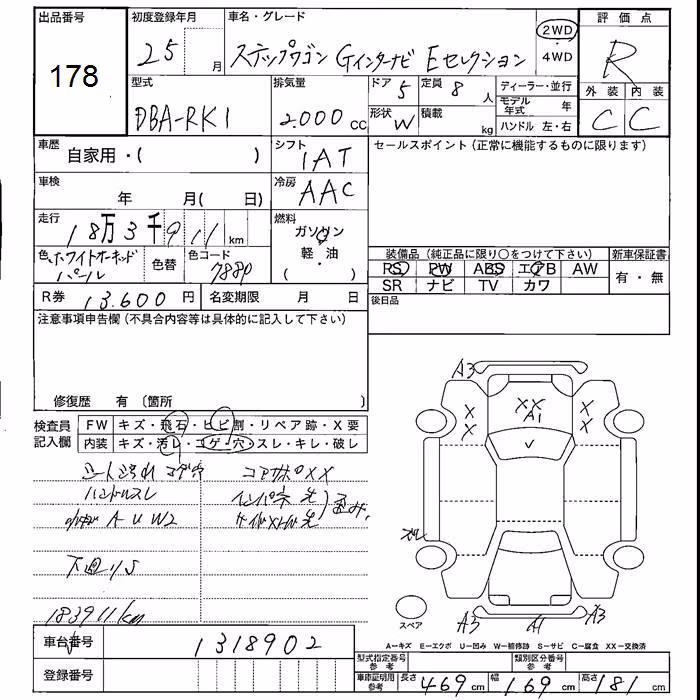 出品番号 初度登録年月 車名・グレード 評価点
178 25 月 ステップワゴン Gインターナビ Eセレクション 2WD・4WD R
型式 排気量 ドア 5 定員 8 人 ディーラー・並行 外装 内装
DBA-RK1 2.000 cc 形状 W 積載 kg モデル年式 年 C C
ハンドル 左・右
車歴 自家用・( ) シフト IAT セールスポイント(正常に機能するものに限ります)
車検 年 月( 日) 冷房 AAC
走行 18万3千911km 燃料 ガソリン 軽・油 ( )
色 ホワイトオーキッドパール 色替 色コード 7880 装備品(純正品に限り○をつけて下さい) 新車保証書
RS PW ABS エアB AW 有・無
SR ナビ TV カワ
R券 13.600 円 名変期限 月 日 後日品
注意事項申告欄(不具合内容等は具体的に記入して下さい)
修復歴 有 〔箇所
検査員記入欄 FW キズ・飛石・ヒビ割・リペア跡・X要
内装 キズ・汚レ・コゲ・穴・スレ・キレ・破レ
シート汚れ コゲ穴 コアサポXX
ハンドルスレ インパネ 光
A U W2
下廻りS
183911km
A3
XX
A1
X X
X X
A3 A1 A3
スペア
A―キズ E―エクボ U―凹み W―補修跡 S―サビ C―腐食 XX―交換済
車台番号 1318902 型式指定番号 参考 類別区分番号 参考
登録番号 車庫証明用 参考 長さ 469 cm 幅 169 cm 高さ 181 cm